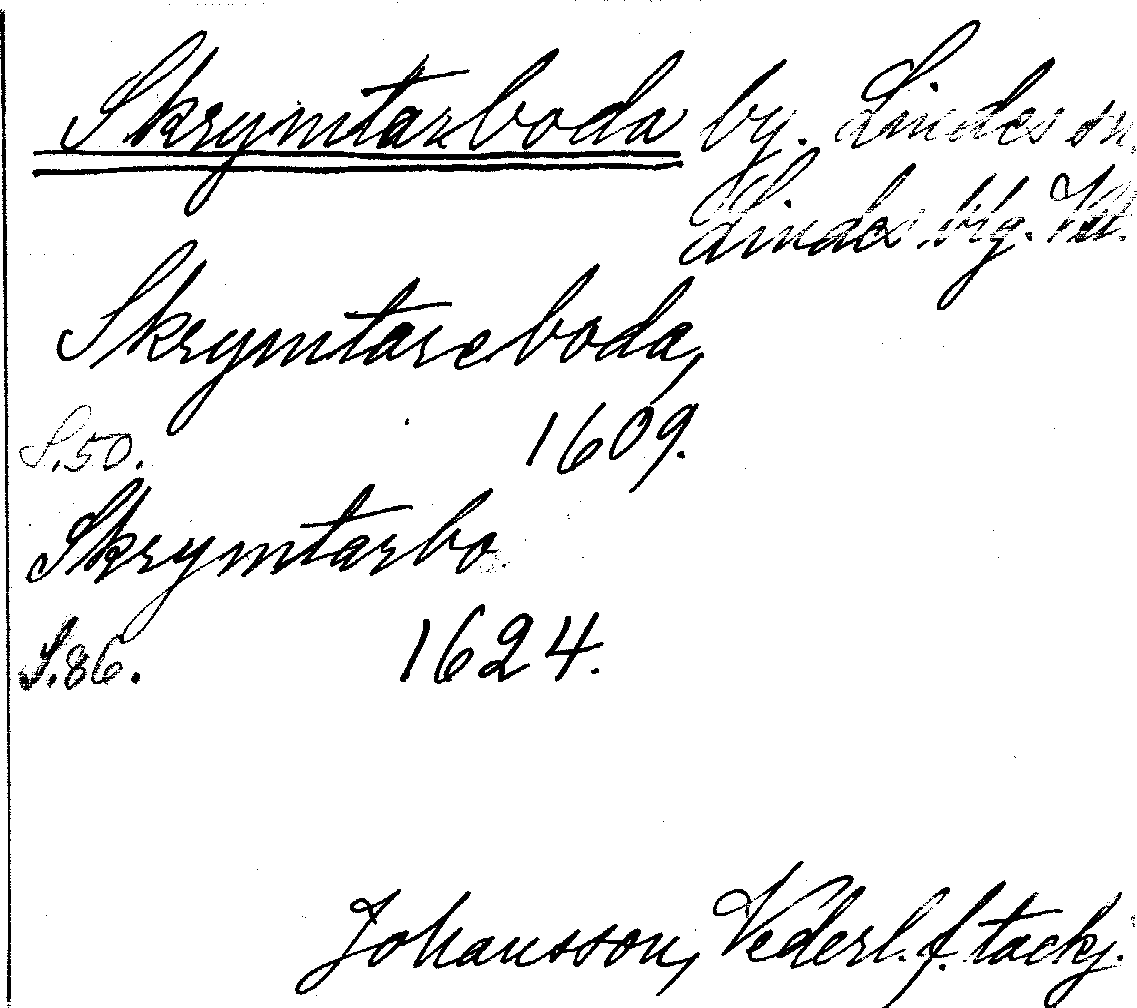 Skrymtarboda by. Lindes sn,
Lindes.brg. Vstl.
Skrymtareboda,
S.50. 1609.
Skrymtarbo
S.86. 1624.
Johansson, Vederl. f. tackj.